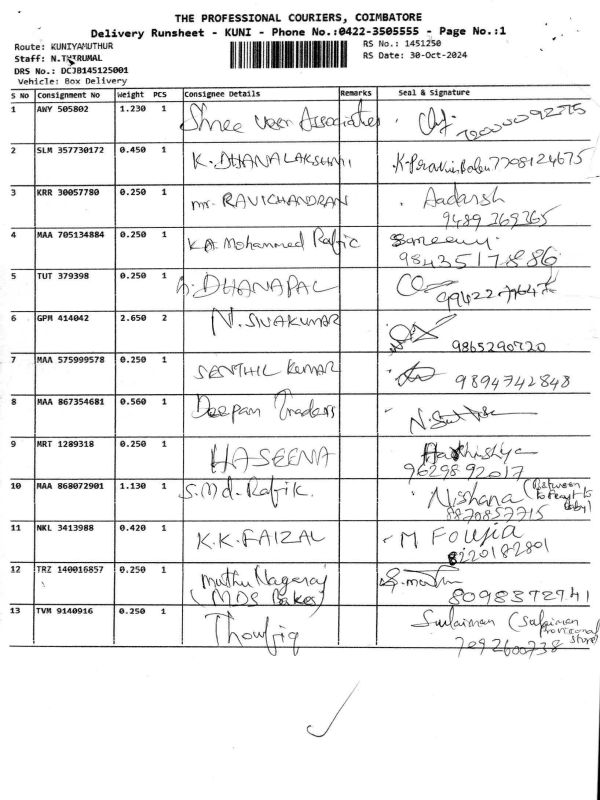 THE PROFESSIONAL COURIERS, COIMBATORE
Delivery Runsheet - KUNI - Phone No.:0422-3505555 - Page No.:1
Route: KUNIYAMUTHUR RS No.: 1451250
Staff: N.THIRUMAL RS Date: 30-Oct-2024
DRS No.: DCJB145125001
Vehicle: Box Delivery
S No Consignment No Weight PCS Consignee Details Remarks Seal & Signature
1 AWY 505802 1.230 1 Shree Veer Associates
2 SLM 357730172 0.450 1 K. DHANALAKSHMI 7708124675
3 KRR 30057780 0.250 1 mr. RAVICHANDRAN Aadarsh
9489769765
4 MAA 705134884 0.250 1 K.A. Mohammed Rafic
9843517886
5 TUT 379398 0.250 1 DHANAPAL
6 GPM 414042 2.650 2 N. SIVAKUMAR
9865290720
7 MAA 575999578 0.250 1 SENTHIL KUMAR 9894742848
8 MAA 867354681 0.560 1 Deepam Traders
9 MRT 1289318 0.250 1 HASEENA
9629892017
10 MAA 868072901 1.130 1 S.Md. Rafik. Nishana
8870857715
11 NKL 3413988 0.420 1 K.K. FAIZAL M Foujia
8220182801
12 TRZ 140016857 0.250 1 Muthu Nagaraj
(MDS Bakes) 8098372941
13 TVM 9140916 0.250 1 Thowfiq Sulaiman (Sulaiman Provisional Store)
7092600738